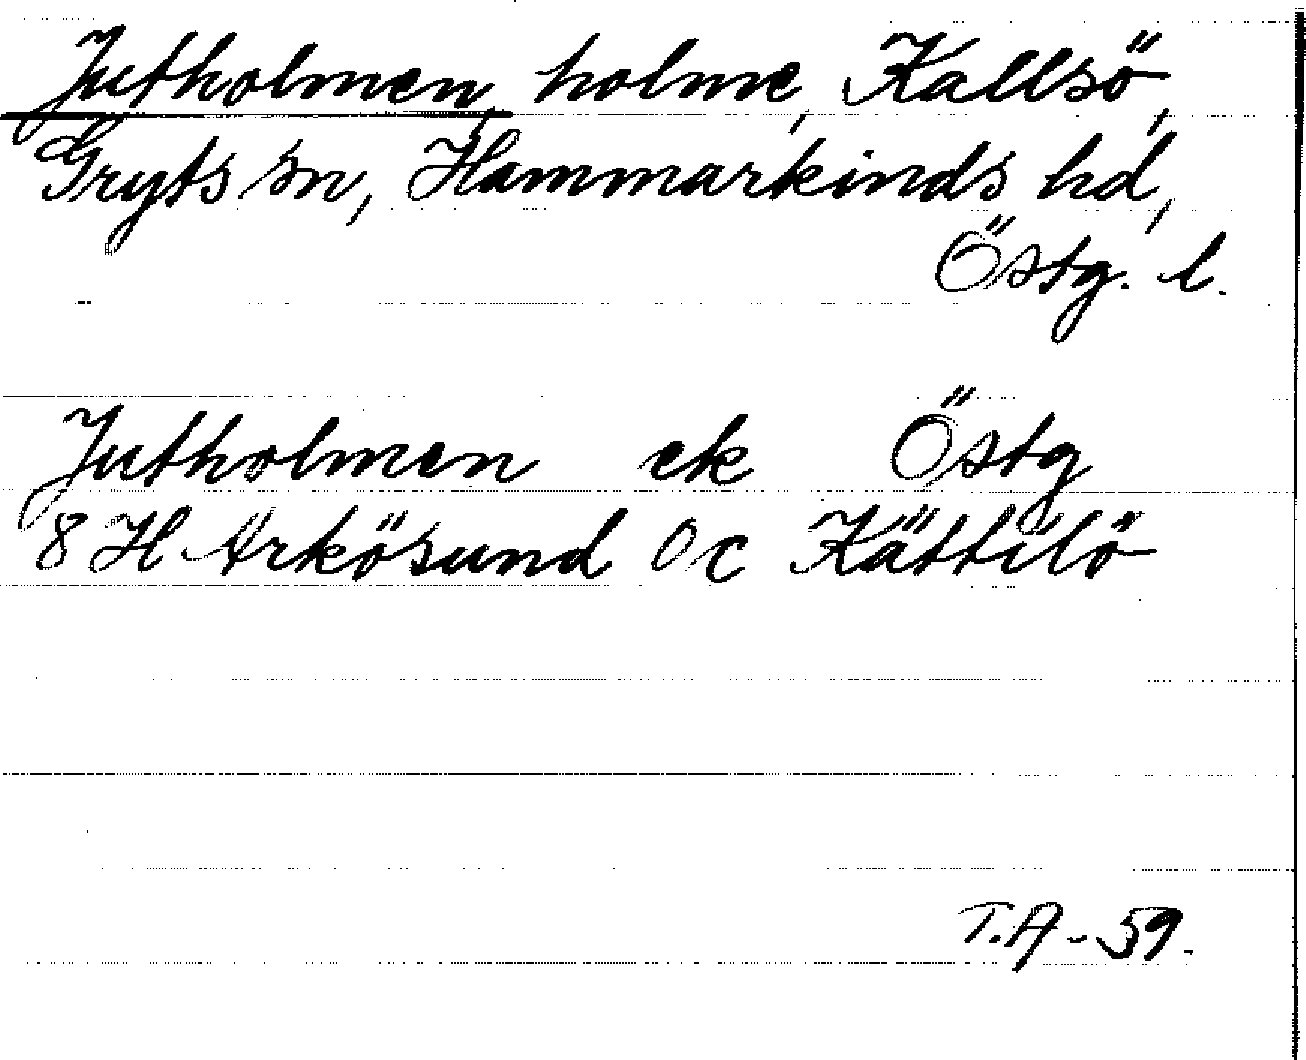 Jutholmen, holme, Kallsö,
Gryts sn, Hammarkinds hd,
Östg. l.
Jutholmen ek Östg
8 H Arkösund 0c Kättilö
T.A-59.